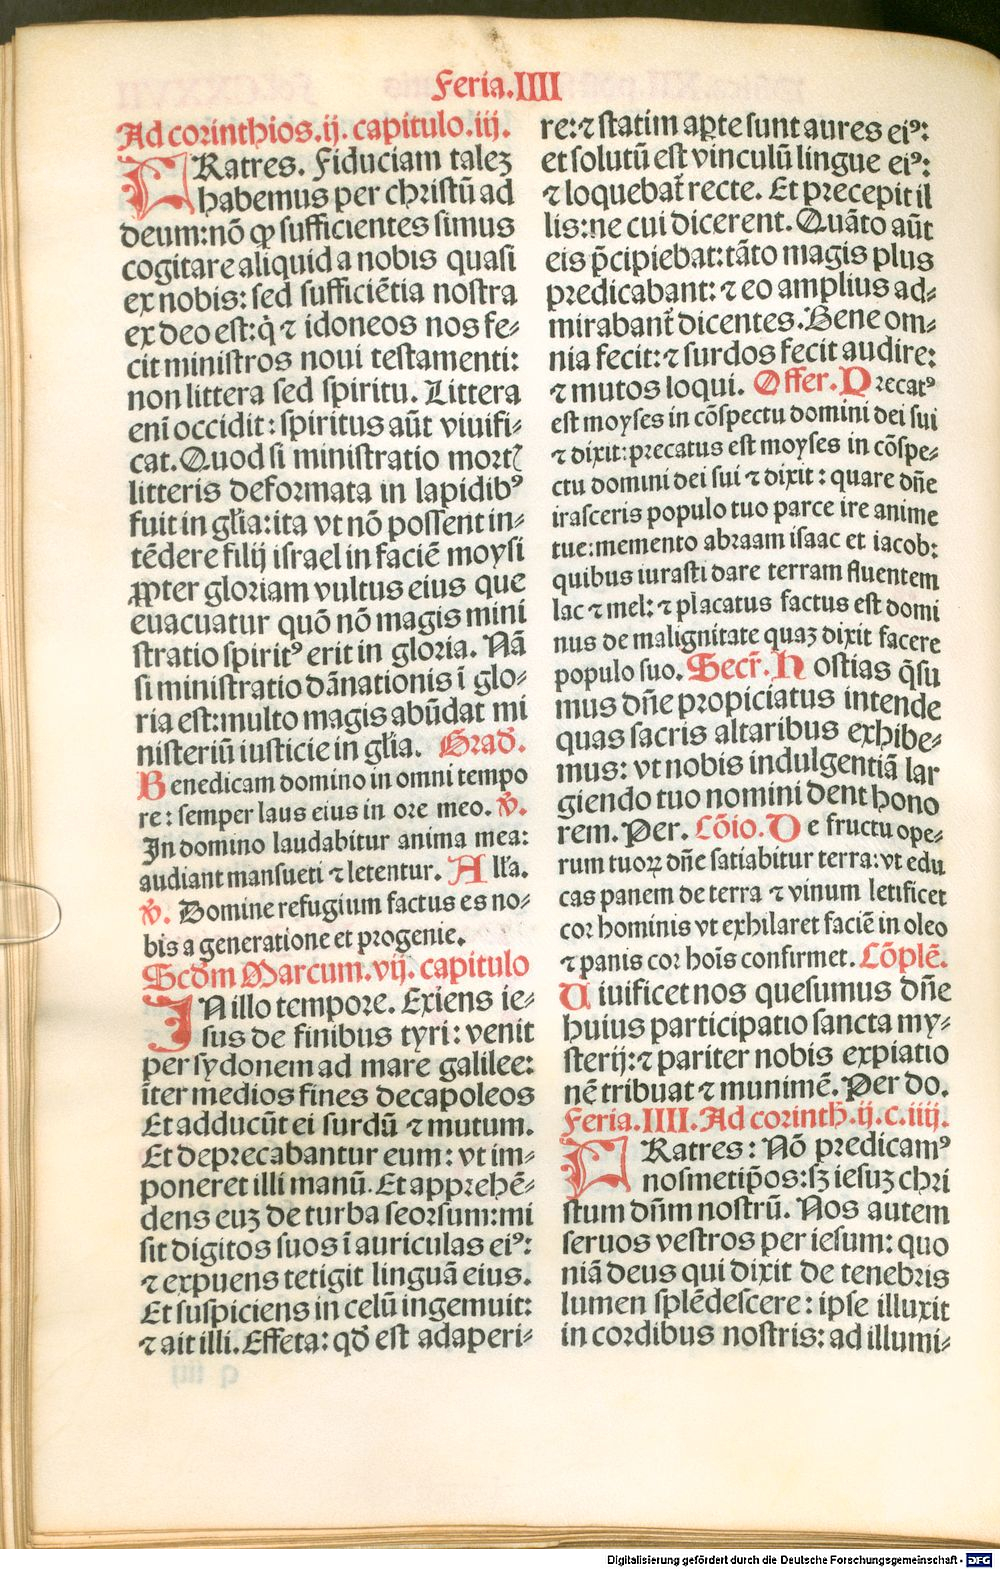 Feria.IIII
Ad corinthios.ij. capitulo.iij.
FRatres. Fiduciam talez
habemus per christū ad
deum:nō ꝙ sufficientes simus
cogitare aliquid a nobis quasi
ex nobis: sed sufficiētia nostra
ex deo est:q̇ ⁊ idoneos nos fe⸗
cit ministros noui testamenti:
non littera sed spiritu. Littera
enī occidit: spiritus aūt viuifi⸗
cat. Quod si ministratio mortꝭ
litteris deformata in lapidibꝰ
fuit in gl̄ia: ita vt nō possent in⸗
tēdere filij israel in faciē moysi
ꝓpter gloriam vultus eius que
euacuatur quō nō magis mini
stratio spiritꝰ erit in gloria. Nā
si ministratio dānationis ī glo⸗
ria est: multo magis abūdat mi
nisteriū iusticie in gl̄ia. Grad̄.
Benedicam domino in omni tempo
re: semper laus eius in ore meo. ℣.
In domino laudabitur anima mea:
audiant mansueti ⁊ letentur. All̄a.
℣. Domine refugium factus es no⸗
bis a generatione et progenie.
Scd̄m Marcum.vij. capitulo
IN illo tempore. Exiens ie⸗
sus de finibus tyri: venit
per sydonem ad mare galilee:
īter medios fines decapoleos
Et adducūt ei surdū ⁊ mutum.
Et deprecabantur eum: vt im⸗
poneret illi manū. Et apprehē⸗
dens euz de turba seorsum: mi
sit digitos suos ī auriculas eiꝰ:
⁊ expuens tetigit linguā eius.
Et suspiciens in celū ingemuit:
⁊ ait illi. Effeta: qd̄ est adaperi⸗
re: ⁊ statim aꝑte sunt aures eiꝰ:
et solutū est vinculū lingue eiꝰ:
⁊ loquebat̄ recte. Et precepit il
lis: ne cui dicerent. Quāto aūt
eis p̄cipiebat: tāto magis plus
predicabant: ⁊ eo amplius ad⸗
mirabant̄ dicentes. Bene om⸗
nia fecit: ⁊ surdos fecit audire:
⁊ mutos loqui. Offer. Precatꝰ
est moyses in cōspectu domini dei sui
⁊ dixit: precatus est moyses in cōspe⸗
ctu domini dei sui ⁊ dixit: quare dn̄e
irasceris populo tuo parce ire anime
tue: memento abraam isaac et iacob:
quibus iurasti dare terram fluentem
lac ⁊ mel: ⁊ placatus factus est domi
nus de malignitate quaz dixit facere
populo suo. Secr̄. Hostias q̄su
mus dn̄e propiciatus intende
quas sacris altaribus exhibe⸗
mus: vt nobis indulgentiā lar
giendo tuo nomini dent hono
rem. Per. Cōio. De fructu ope⸗
rum tuoꝝ dn̄e satiabitur terra: vt edu
cas panem de terra ⁊ vinum letificet
cor hominis vt exhilaret faciē in oleo
⁊ panis cor hoīs confirmet. Cōplē.
Viuificet nos quesumus dn̄e
huius participatio sancta my⸗
sterij: ⁊ pariter nobis expiatio
nē tribuat ⁊ munimē. Per do.
Feria.IIII. Ad corinth̄.ij.c.iiij.
FRatres: Nō predicamꝰ
nosmetip̄os: sz iesuz chri
stum dn̄m nostrū. Nos autem
seruos vestros per iesum: quo
niā deus qui dixit de tenebris
lumen splēdescere: ipse illuxit
in cordibus nostris: ad illumi⸗
Digitalisierung gefördert durch die Deutsche Forschungsgemeinschaft - DFG